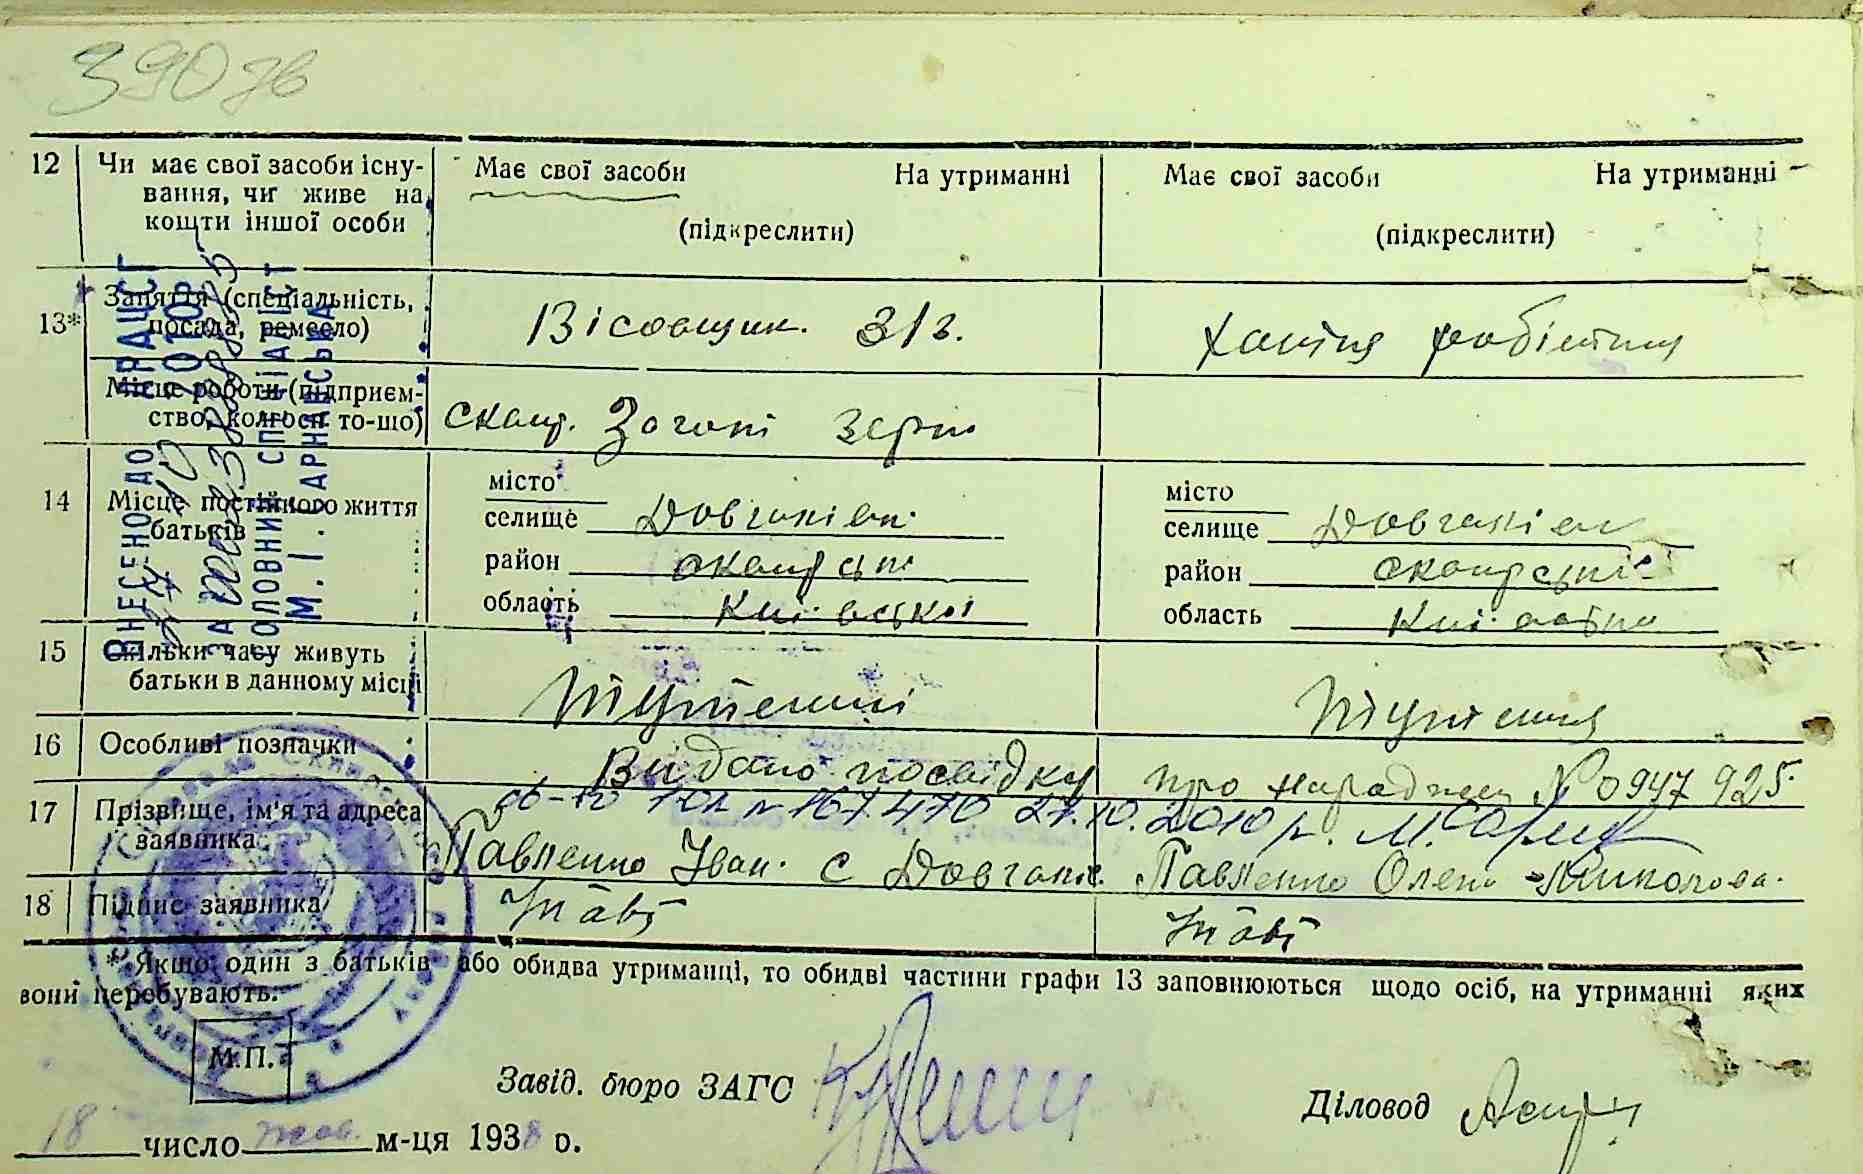 390 зв
12 Чи має свої засоби існу- Має свої засоби На утриманні Має свої засоби На утриманні
вання, чи живе на
кошти іншої особи (підкреслити) (підкреслити)
13* Заняття (спеціальність, Вісовщик. 31 г. Хатня робітниця
посада, ремесло)
Місце роботи (підприєм-
ство, колгосп то-що) зерно
14 Місце постійного життя місто місто
батьків селище Довгалівка селище Довгалівка
район район
область Київської область Київська
15 Скільки часу живуть Тутешній Тутешня
батьки в данному місці
16 Особливі позначки Видано посвідку про народжен № 0947925
17 Прізвище, ім'я та адреса № 167470 27.10.2010 р.
заявника Павленко Іван с Павленко Олена Миколаєв.
18 Підпис заявника
* Якщо один з батьків або обидва утриманці, то обидві частини графи 13 заповнюються щодо осіб, на утриманні яких
вони перебувають.
М.П.
Завід. бюро ЗАГС
Діловод
18 число жов. м-ця 1938 р.
ВНЕСЕНО ДО ДРАЦСГ
ГОЛОВНИЙ СПЕЦІАЛІСТ